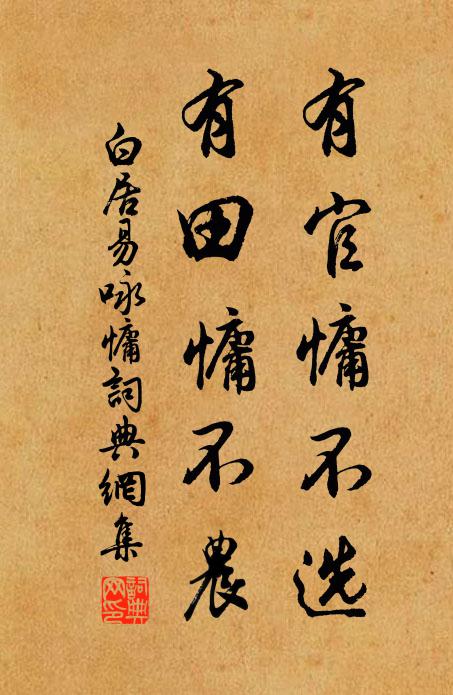 有官慵不选
有田慵不農
白居易咏慵詞典網集
詞典网印